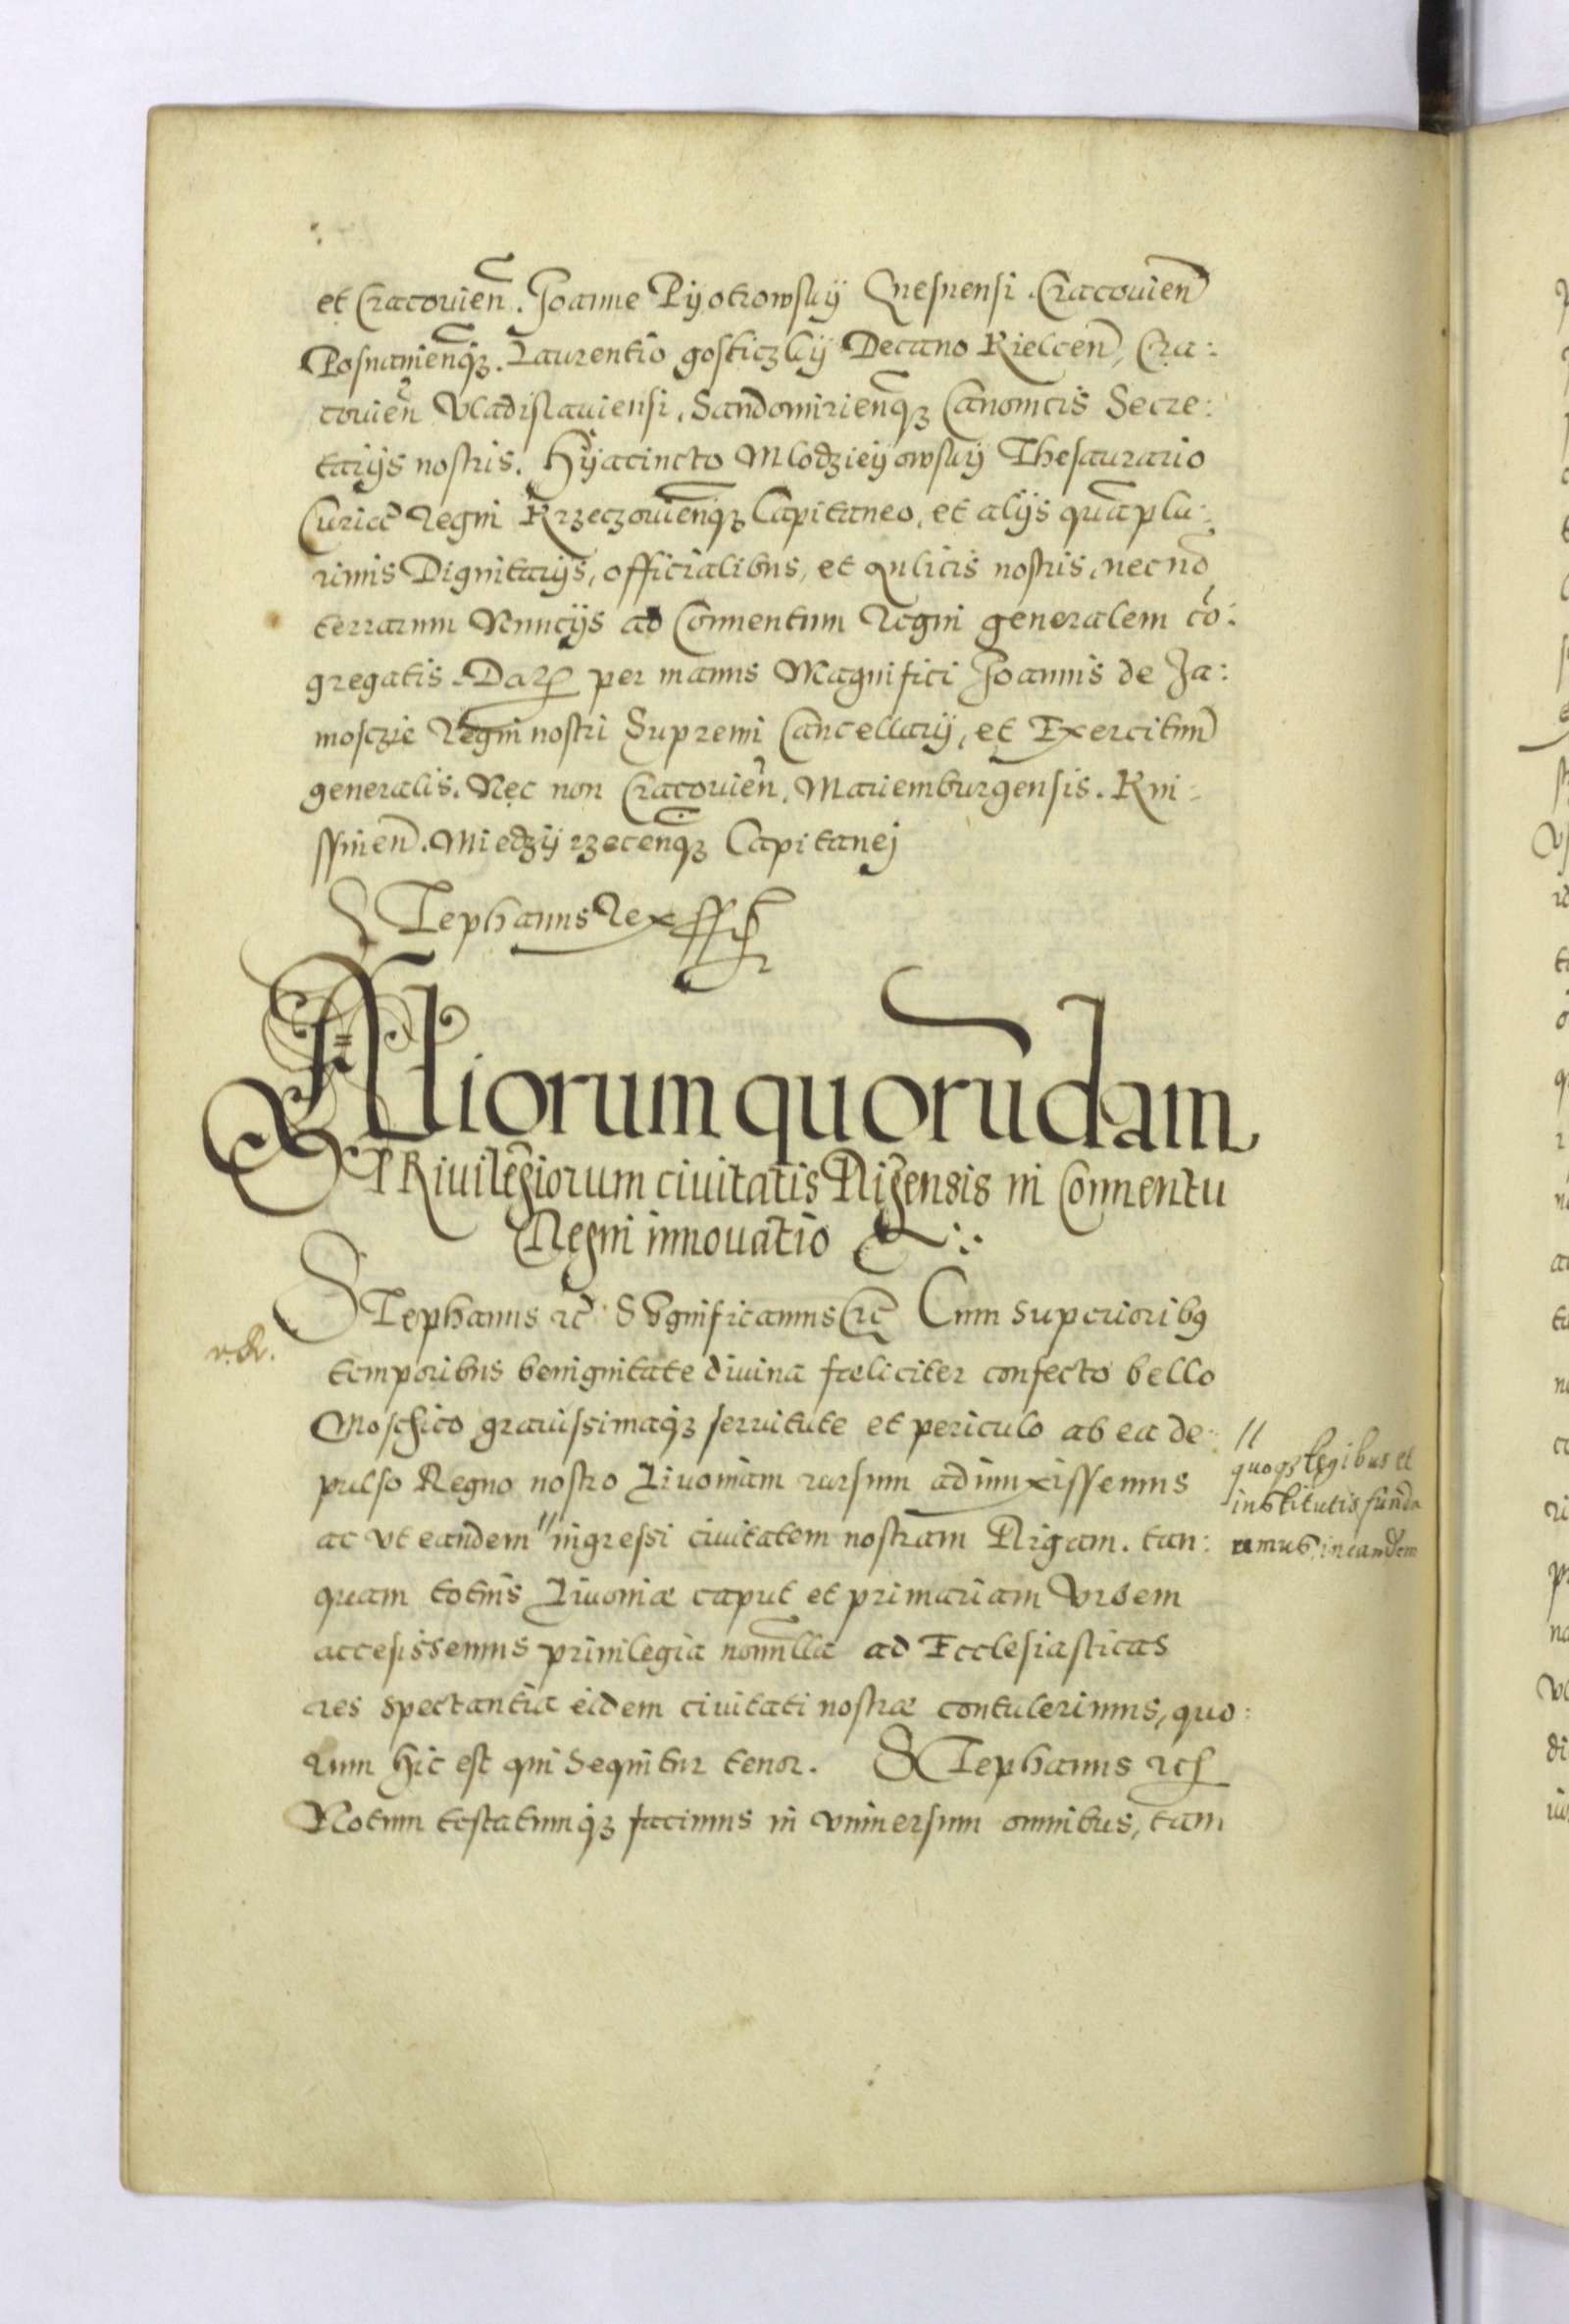 et Cracouien̄. Joanne Pijotrowskij Gnesnensi. Cracouien̄
Posnanienq3. Laurentio gosticzkij Decano Kielcen̄, Cra:
couien̄ Vladislauiensi, Sandomirienq3 Canonicis Secre:
tarijs nostris. Hijacincto Mlodzieijowskij Thesaurario
Curiæ Regni Krzeczouienq3 Capitaneo, et alijs quāplu:
rimis Dignitarijs, officialibus, et Aulicis nostris, nec nō
terrarum Nuncijs ad Conuentum Regni generalem cō:
gregatis. Dat. per manus Magnifici Joannis de Za:
mosczie Regni nostri Supremi Cancellarij, et Exercituū
generalis. Nec non Cracouien̄. Mariemburgensis. Kni:
ssinen̄. Miedzijrzecenq3 Capitanej
Stephanus Rex sst
Aliorum quorūdam
PRiuilegiorum ciuitatis Rigensis in Conuentu
Regni innouatio
Stephanus rc̄ Significamus rc̄ Cum superiorib9
temporibus benignitate diuina fæliciter confecto bello
Moschico grauissimaq3 seruitute et periculo ab ea de:
pulso Regno nostro Liuoniam rursum adiunxissemus
ac vt eandem // ingressi ciuitatem nostram Rigam. tan:
//
quoq3 legibus et
institutis funda
remus, in eandem
quam totius Liuoniæ caput et primariam Vrbem
accesissemus priuilegia nonnulla ad Ecclesiasticas
res spectantia eidem ciuitati nostræ contulerimus, quo:
rum hic est qui sequitur tenor. Stephanus rc̄
Notum testatumq3 facimus in vniuersum omnibus, tam